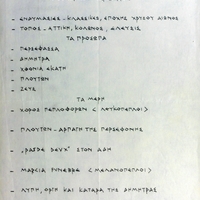 - ΕΝΔΥΜΑΣΙΕΣ - ΚΛΑΣΣΙΚΕΣ, ΕΠΟΧΗΣ ΧΡΥΣΟΥ ΑΙΩΝΟΣ
- ΤΟΠΟΣ - ΑΤΤΙΚΗ, ΚΟΛΩΝΟΣ, ΕΛΕΥΣΙΣ
ΤΑ ΠΡΟΣΩΠΑ
- ΠΕΡΣΕΦΑΣΣΑ
- ΔΗΜΗΤΡΑ
- ΧΘΟΝΙΑ ΕΚΑΤΗ
- ΠΛΟΥΤΩΝ
- ΖΕΥΣ
ΤΑ ΜΕΡΗ
- ΧΟΡΟΣ ΠΕΠΛΟΦΟΡΩΝ (ΛΕΥΚΟΠΕΠΛΟΙ)
- ΠΛΟΥΤΩΝ - ΑΡΠΑΓΗ ΤΗΣ ΠΕΡΣΕΦΟΝΗΣ
- "PAS DE DEUX" ΣΤΟΝ ΑΔΗ
- MARCIA FUNEBRE (ΜΕΛΑΝΟΠΕΠΛΟΙ)
- ΛΥΠΗ, ΟΡΓΗ ΚΑΙ ΚΑΤΑΡΑ ΤΗΣ ΔΗΜΗΤΡΑΣ